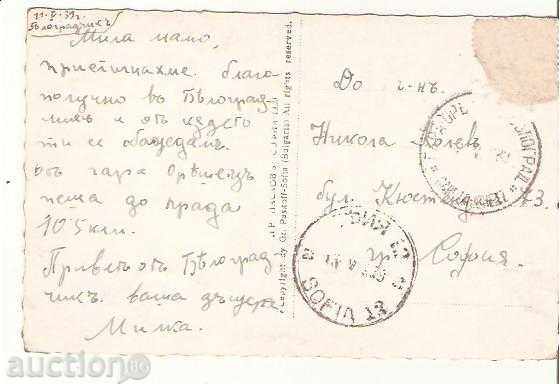 11-V-39г.
Бѣлоградчикъ
Мила мамо,
пристигнахме благо-
получно въ Бѣлоград-
чикъ и отъ кѫдето
ти се обаждамъ.
Отъ гара Орѣшецъ
пеша до града
10·5 км.
Привѣтъ отъ Бѣлоград-
чикъ. ваша дъщеря
Милка.
Copyright by Gr. Paskoff-Sofia (Bulgaria) All rights reserved.
До г-нъ
Никола Колевъ
бул. Кюстенд 73.
гр. София.
СОФИЯ
SOFIA
auction